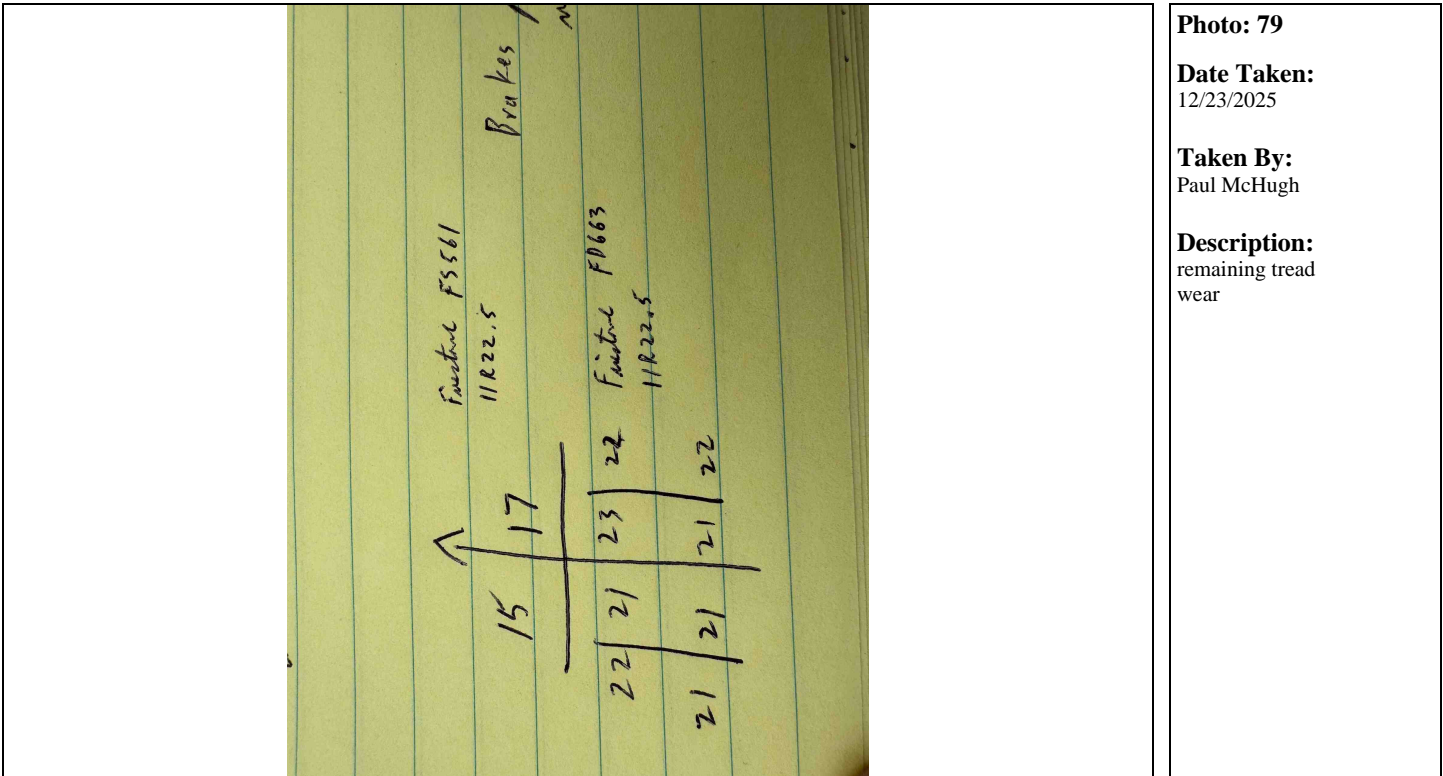 Brakes
Firestone FS561
11R22.5
15 17
22 21 23 22 Firestone FD663
11R22.5
21 21 21 22
Photo: 79
Date Taken:
12/23/2025
Taken By:
Paul McHugh
Description:
remaining tread
wear